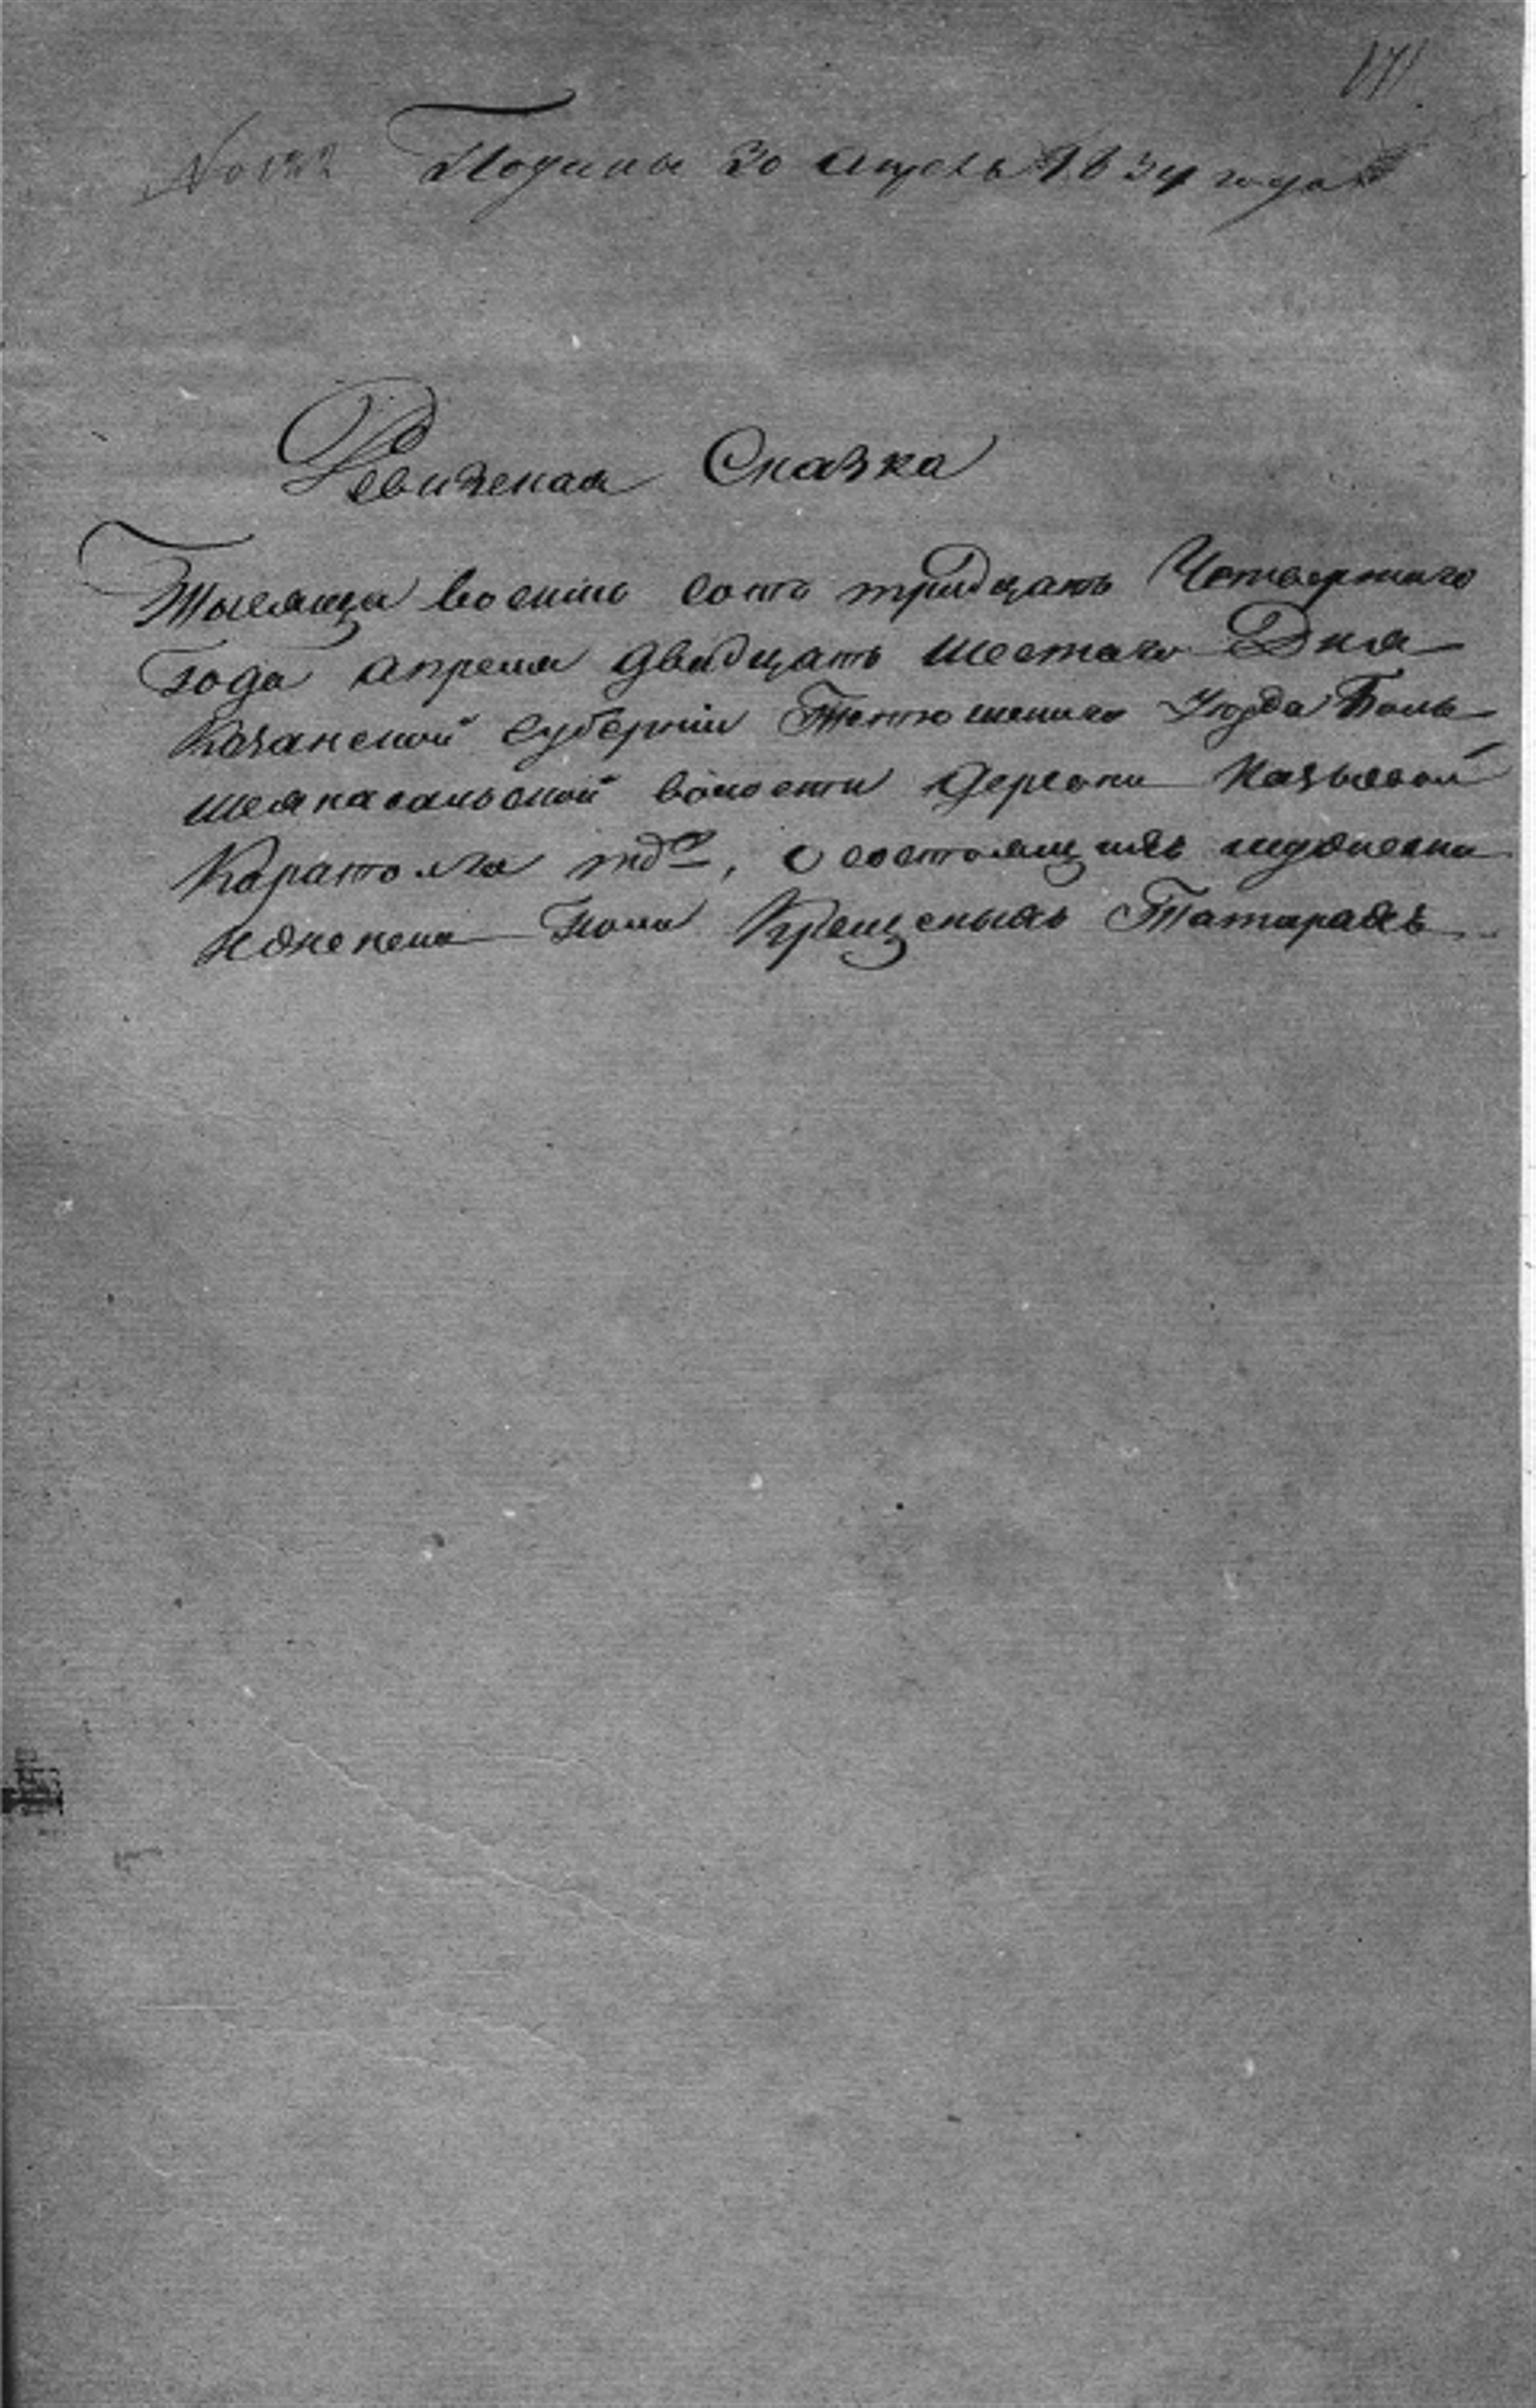 171
№ 122 Подана 30 апреля 1834 года
Ревизская Сказка
Тысяща восемь сотъ тридцать Четвертаго
года апреля двадцать шестаго Дня
Казанской Губернiи Тетюшскаго Уезда Боль
шеяпасальской волости деревни
Каратолга тожъ, о состоящихъ мужеска
и женска пола Крещеныхъ Татарахъ